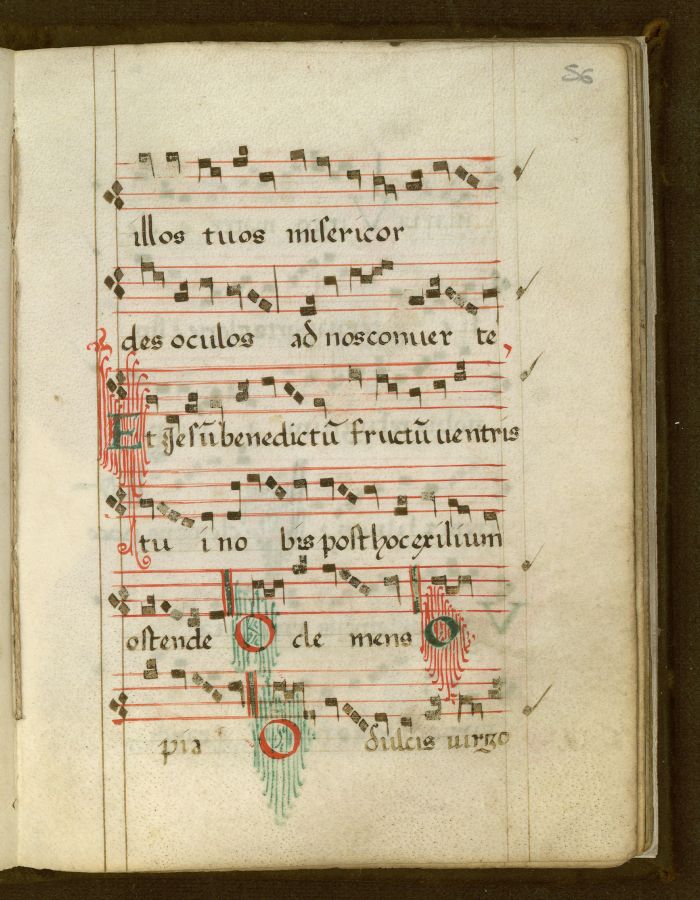 56
illos tuos misericor
des oculos ad nos conuer te
Et Jesū benedictū fructū uentris
tu i no bis post hoc exilium
ostende O cle mens O
pia O dulcis uirgo